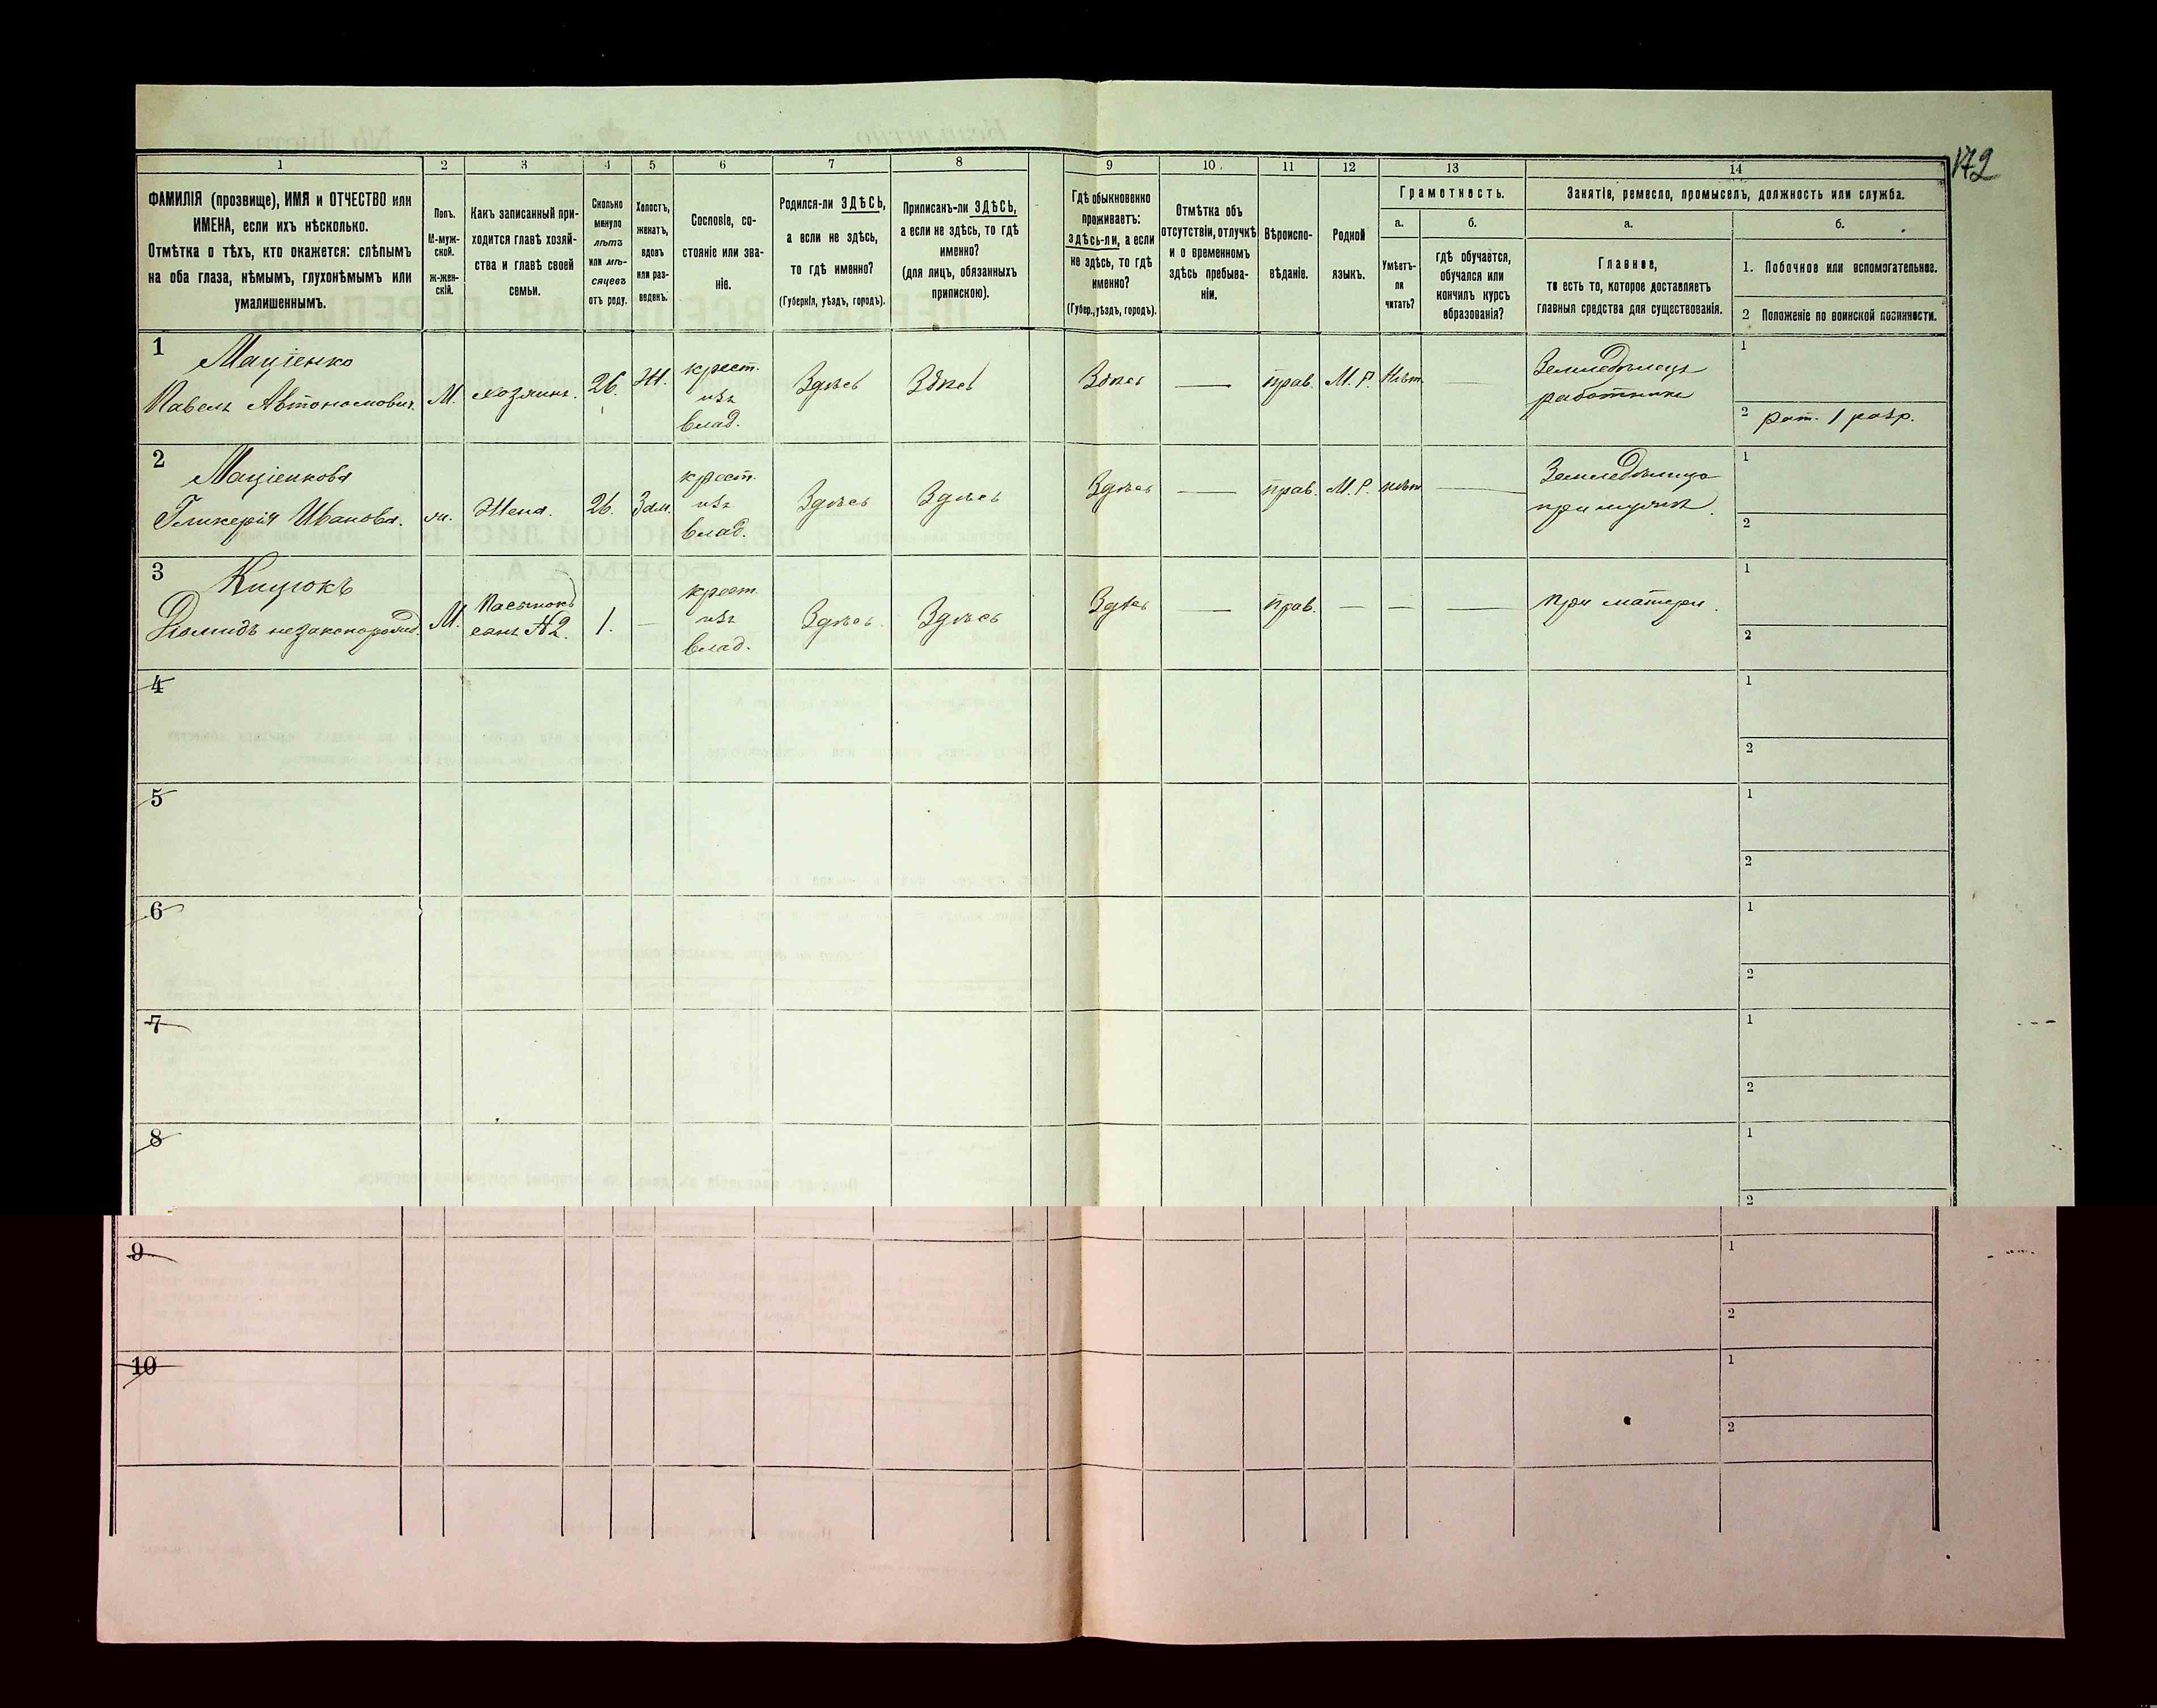 172
1 2 3 4 5 6 7 8 9 10 11 12 13 14
ФАМИЛІЯ (прозвище), ИМЯ и ОТЧЕСТВО или
ИМЕНА, если ихъ нѣсколько.
Отмѣтка о тѣхъ, кто окажется: слѣпымъ
на оба глаза, нѣмымъ, глухонѣмымъ или
умалишеннымъ.
Полъ.
М-муж-
ской.
ж-жен-
скій.
Какъ записанный при-
ходится главѣ хозяй-
ства и главѣ своей
семьи.
Сколько
минуло
лѣтъ
или мѣ-
сяцевъ
отъ роду.
Холостъ,
женатъ,
вдовъ
или раз-
веденъ.
Сословіе, со-
стояніе или зва-
ніе.
Родился-ли ЗДѢСЬ,
а если не здѣсь,
то гдѣ именно?
(Губернія, уѣздъ, городъ).
Приписанъ-ли ЗДѢСЬ,
а если не здѣсь, то гдѣ
именно?
(для лицъ, обязанныхъ
припискою).
Гдѣ обыкновенно
проживаетъ:
здѣсь-ли, а если
не здѣсь, то гдѣ
именно?
(Губер., уѣздъ, городъ).
Отмѣтка объ
отсутствіи, отлучкѣ
и о временномъ
здѣсь пребыва-
ніи.
Вѣроиспо-
вѣданіе.
Родной
языкъ.
Грамотность.
а.
Умѣетъ-
ли
читать?
б.
гдѣ обучается,
обучался или
кончилъ курсъ
образованія?
Занятіе, ремесло, промыселъ, должность или служба.
а.
Главное,
то есть то, которое доставляетъ
главныя средства для существованія.
б.
1. Побочное или вспомогательное.
2 Положеніе по воинской повинности.
1
Маціенко
Павелъ Автономовичъ.
М.
хозяинъ.
26.
Ж.
крест.
изъ
влад.
Здѣсь
Здѣсь
Здѣсь
—
прав.
М. Р.
Нѣт.
—
Земледѣлецъ
работникъ
1
2 рат. 1 разр.
2
Маціенкова
Гликерія Иванова.
ж.
Жена.
26.
Зам.
крест.
изъ
влад.
Здѣсь
Здѣсь
Здѣсь
—
прав.
М. Р.
нѣт
—
Земледѣлица
при мужѣ.
1
2
3
Кицюкъ
Діомидъ незаконорожд.
М.
Пасынокъ
сынъ №2.
1.
—
крест.
изъ
влад.
Здѣсь.
Здѣсь
Здѣсь
—
прав.
—
—
—
при матери.
1
2
4
1
2
5
1
2
6
1
2
7
1
2
8
1
2
9
1
2
10
1
2